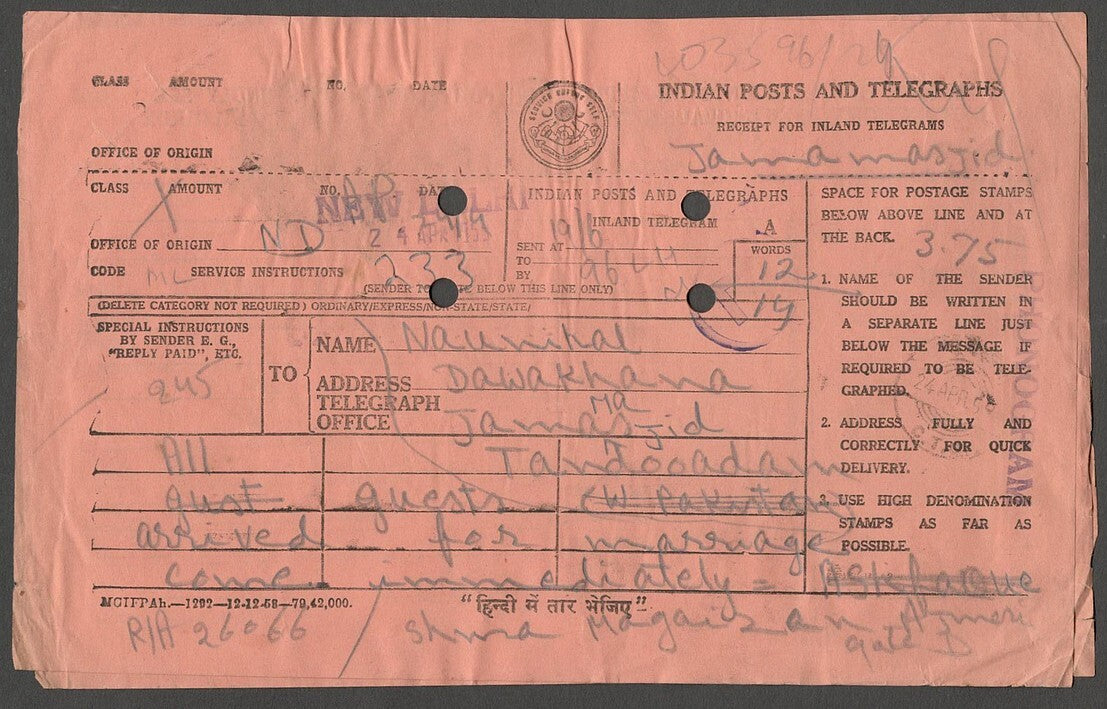 CLASS AMOUNT NO. DATE
INDIAN POSTS AND TELEGRAPHS
RECEIPT FOR INLAND TELEGRAMS
OFFICE OF ORIGIN
Jamamasjid
CLASS AMOUNT NO. DATE
NEW DELHI
OFFICE OF ORIGIN ND
CODE ML SERVICE INSTRUCTIONS 233
INDIAN POSTS AND TELEGRAPHS
INLAND TELEGRAM
SENT AT
TO
BY
A
WORDS
12
14
(DELETE CATEGORY NOT REQUIRED) ORDINARY/EXPRESS/NON-STATE/STATE/
SPECIAL INSTRUCTIONS
BY SENDER E. G.,
"REPLY PAID", ETC.
245
TO
NAME Naunihal
ADDRESS Dawakhana
TELEGRAPH
OFFICE Jamamasjid
All Tandooadam
gust guests (W Pakistan)
arrived for marriage
come immediately =
MGIFPAh.—1292—12-12-58—79,42,000.
"हिन्दी में तार भेजिए"
R/A 26066
SPACE FOR POSTAGE STAMPS
BELOW ABOVE LINE AND AT
THE BACK. 3.75
1. NAME OF THE SENDER
SHOULD BE WRITTEN IN
A SEPARATE LINE JUST
BELOW THE MESSAGE IF
REQUIRED TO BE TELE-
GRAPHED.
2. ADDRESS FULLY AND
CORRECTLY FOR QUICK
DELIVERY.
3. USE HIGH DENOMINATION
STAMPS AS FAR AS
POSSIBLE.